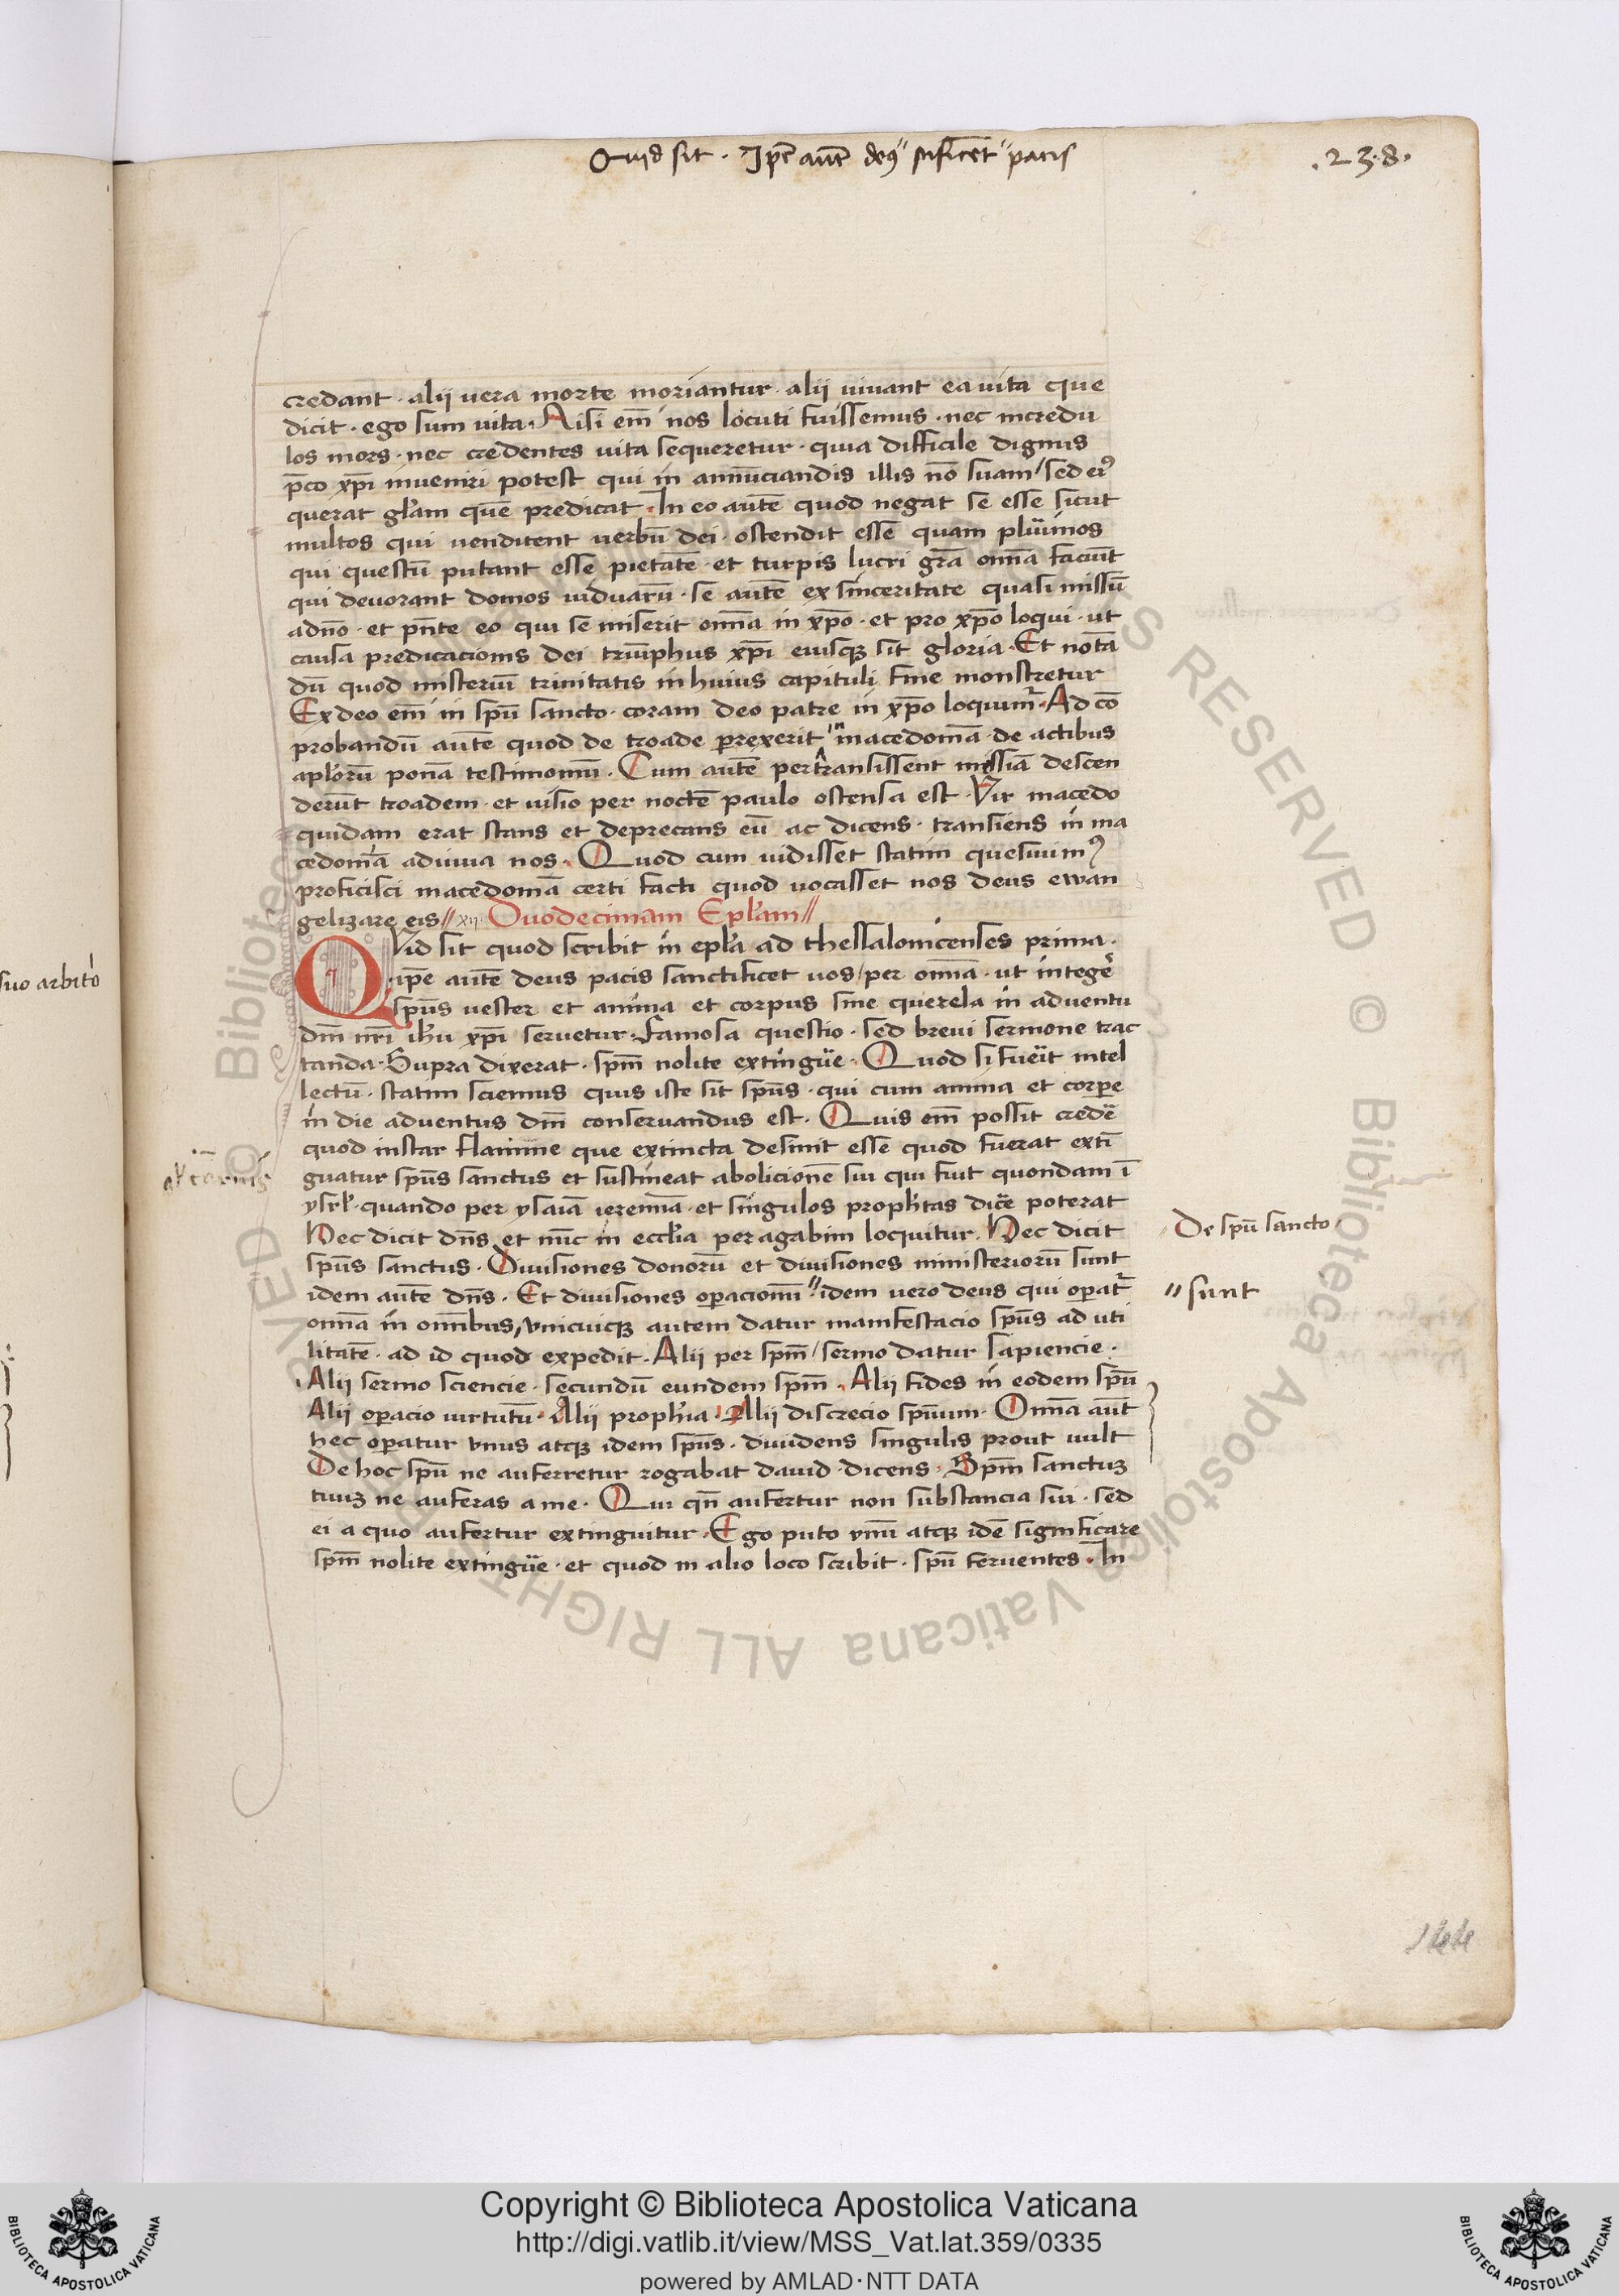 Quid sit · Ip̄e aut̄e deꝰ" sc̄ificet" pacis
.238.
credant · alij uera morte moriantur · alij uiuant ea uita que
dicit · ego sum uita · Nisi em̄ nos locuti fuissemus · nec incredu
los mors · nec credentes uita sequeretur · quia difficile dignus
p̄co xp̄i inueniri potest qui in annūciandis illis nō suam / sed eiꝰ
querat gl̄am quē predicat · In eo autē quod negat se esse sicut
multos qui venditent verbū dei · ostendit esse quam plurimos
qui questū putant esse pietatē · et turpis lucri grā om̄a faciūt
qui deuorant domos uiduarū · se autē ex sinceritate quasi missū
adn̄o · et pn̄te eo qui se miserit om̄a in xp̄o · et pro xp̄o loqui · ut
causa predicacionis dei triūphus xp̄i eiusqꝫ sit gloria · Et notā
dū quod misteriū trinitatis in huius capituli fine monstretur
Ex deo em̄ in spū sancto · coram deo patre in xp̄o loquimr̄ · Ad cō
probandū autē quod de troade perrexerit in macedoniā · de actibus
apl̄orū ponā testimoniū · Cum autē pertransissent missiā descen
derūt troadem · et uisio per noctē paulo ostensa est · Vir macedo
quidam erat stans et deprecans eū ac dicens · transiens in ma
cedoniā adiuua nos · Quod cum uidisset statim quesiuimꝰ
proficisci macedoniā certi facti quod uocasset nos deus ewan
gelizare eis // xii · Duodecimam Epl̄am //
Quid sit quod scribit in epl̄a ad thessalonicenses prima ·
ip̄e autē deus pacis sanctificet uos / per om̄a · ut integer̄
spūs vester et anima et corpus sine querela in aduentu
dn̄i nr̄i ihu xp̄i seruetur · Famosa questio · sed breui sermone trac
tanda · Supra dixerat · spm̄ nolite extingūe · Quod si fueīt intel
lectū · statim sciemus quis iste sit spūs · qui cum anima et corpore
in die aduentus dn̄i conseruandus est · Quis em̄ possit credē
quod instar flamme que extincta desinit esse quod fuerat extī
guatur spūs sanctus et sustineat abolicionē sui qui fuit quondam ī
ysrl̄ · quando per ysaiā ieremiā · et singulos proph̄tas dicē poterat
Hec dicit dn̄s et nūc in eccl̄ia per agabim loquitur · Hec dicit
De spū sancto
spūs sanctus · Diuisiones donorū et diuisiones ministeriorū sunt
idem autē dn̄s · Et diuisiones operacionū " idem vero deus qui operatr̄
" sunt
om̄a in om̄ibus, vnicuiqꝫ autem datur manifestacio spūs ad uti
litatē · ad id quod expedit · Alij per spm̄ / sermo datur sapiencie ·
Alij sermo sciencie · secundū eundem spm̄ · Alij fides in eodem spū
Alij operacio uirtutū · Alij proph̄ia · Alij discrecio spūum · Om̄a aūt
hec operatur vnus atqꝫ idem spūs · diuidens singulis prout uult
De hoc spū ne auferretur rogabat dauid · dicens · Spm̄ sanctuꝫ
tuuꝫ ne auferas a me · Qui qn̄ aufertur non substancia sui · sed
ei a quo aufertur extinguitur · Ego puto vnū atqꝫ idē significare
spm̄ nolite extingūe · et quod in alio loco scribit · spū feruentes · In
suo arbitō
Copyright © Biblioteca Apostolica Vaticana
http://digi.vatlib.it/view/MSS_Vat.lat.359/0335
powered by AMLAD·NTT DATA
BIBLIOTECA APOSTOLICA VATICANA
BIBLIOTECA APOSTOLICA VATICANA
© Biblioteca Apostolica Vaticana ALL RIGHTS RESERVED